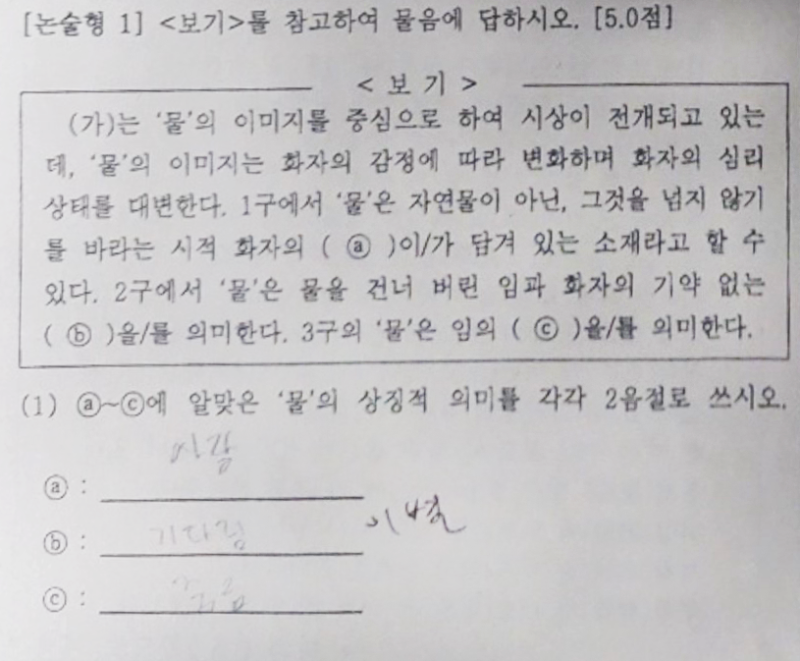 [논술형 1] <보기>를 참고하여 물음에 답하시오. [5.0점]
< 보 기 >
(가)는 '물'의 이미지를 중심으로 하여 시상이 전개되고 있는
데, '물'의 이미지는 화자의 감정에 따라 변화하며 화자의 심리
상태를 대변한다. 1구에서 '물'은 자연물이 아닌, 그것을 넘지 않기
를 바라는 시적 화자의 ( ⓐ )이/가 담겨 있는 소재라고 할 수
있다. 2구에서 '물'은 물을 건너 버린 임과 화자의 기약 없는
( ⓑ )을/를 의미한다. 3구의 '물'은 임의 ( ⓒ )을/를 의미한다.
(1) ⓐ~ⓒ에 알맞은 '물'의 상징적 의미를 각각 2음절로 쓰시오.
ⓐ : 사랑
ⓑ : 기다림 이별
ⓒ :